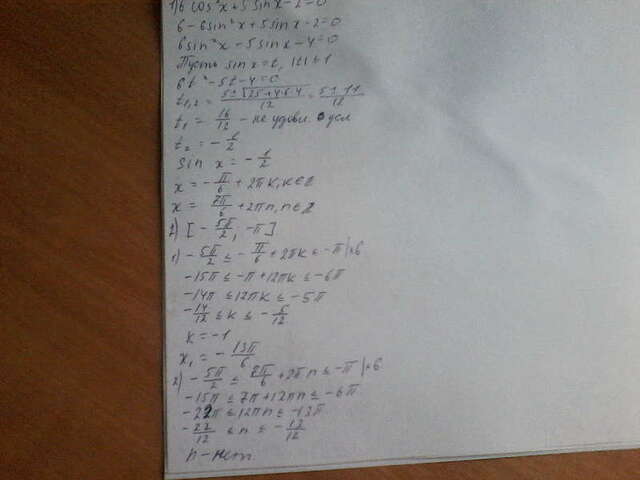 1) 6 cos²x + 5 sin x - 2 = 0
6 - 6 sin²x + 5 sin x - 2 = 0
6 sin²x - 5 sin x - 4 = 0
Пусть sin x = t, |t| ≤ 1
6t² - 5t - 4 = 0
t₁,₂ = (5 ± √(25 + 4·6·4))/12 = (5 ± 11)/12
t₁ = 16/12 - не удовл. усл
t₂ = - 1/2
sin x = - 1/2
x = - π/6 + 2πk, k ∈ Z
x = 7π/6 + 2πn, n ∈ Z
2) [- 5π/2, -π]
1) - 5π/2 ≤ - π/6 + 2πk ≤ -π | ×6
-15π ≤ -π + 12πk ≤ -6π
-14π ≤ 12πk ≤ -5π
- 14/12 ≤ k ≤ - 5/12
k = -1
x₁ = - 13π/6
2) - 5π/2 ≤ 7π/6 + 2πn ≤ -π | ×6
-15π ≤ 7π + 12πn ≤ -6π
-22π ≤ 12πn ≤ -13π
- 22/12 ≤ n ≤ - 13/12
n - нет